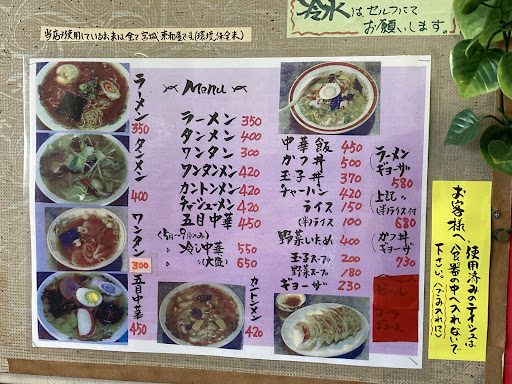 冷水はセルフにて
お願いします。
Menu
ラーメン 350
タンメン 400
ワンタン 300
ワンタンメン 420
カントンメン 420
チャーシューメン 420
五目中華 450
(5月〜9月のみ)
冷し中華 550
〃 (大盛) 650
中華飯 450
カツ丼 500
玉子丼 370
チャーハン 420
ライス 150
(半)ライス 100
野菜いため 400
玉子スープ 200
野菜スープ 180
ギョーザ 230
ラーメン
ギョーザ
580
上記の
(半)ライス付
680
カツ丼
ギョーザ
730
ラーメン
350
タンメン
400
ワンタン
300
五目中華
450
カントンメン
420
お客様へ、
使用済みのティッシュは
食器の中へ入れないで
下さい。(ゴミ入れに)